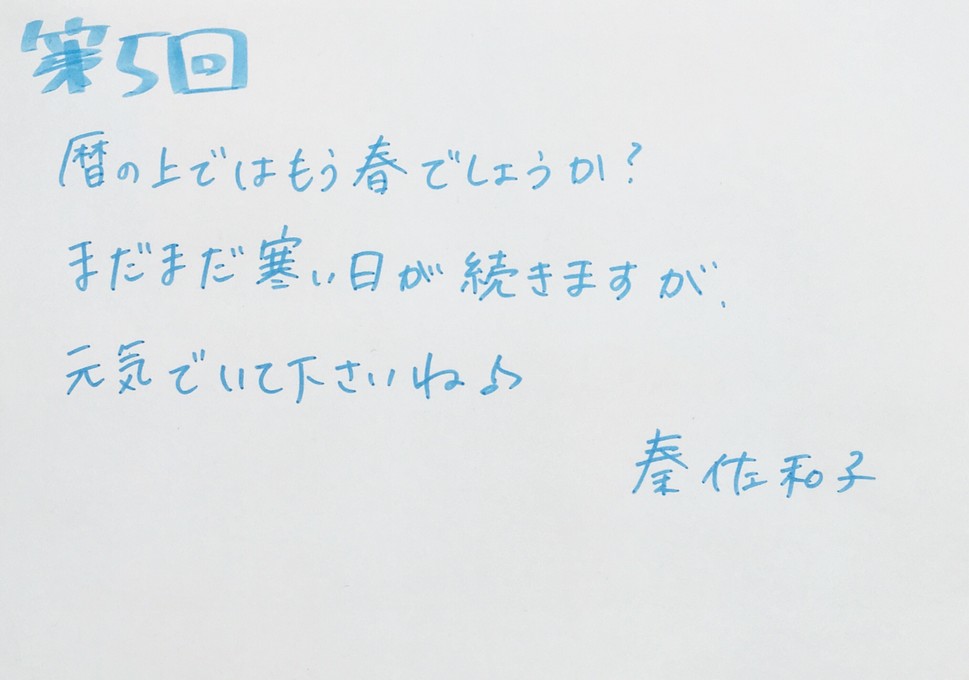 第5回
暦の上ではもう春でしょうか?
まだまだ寒い日が続きますが、
元気でいて下さいね♪
秦佐和子